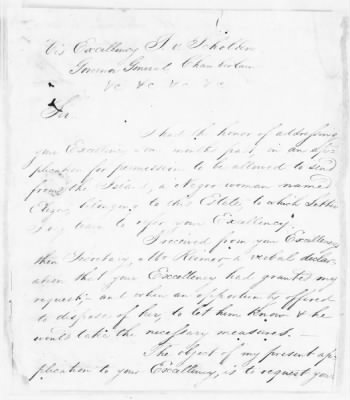 His Excellency P. v. Scholten
Governor General Chamberlain
&c &c &c &c
Sir
I had the honor of addressing
your Excellency some months past, in an ap-
plication for permission to be allowed to send
from the Island, a Negro woman named
belonging to this Estate, to which letter
I beg leave to refer your Excellency.
I received from your Excellency's
then Secretary, Mr a verbal declar-
ation that your Excellency had granted my
request, and when an opportunity offered
to dispose of her, to let him know & he
would take the necessary measures. —
The object of my present ap-
plication to your Excellency, is to request your